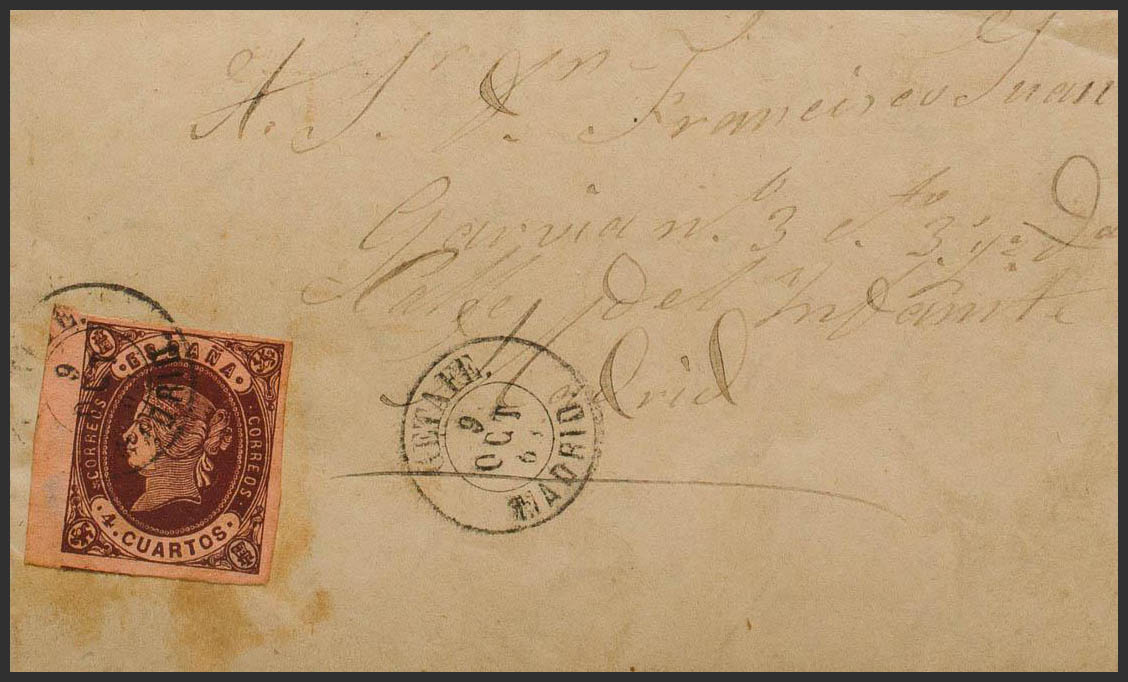 A. S.r D.n Francisco Juan
Garvia n.º 3 c.to 3.º yz.da
Calle del Infante
Madrid
ESPAÑA
CORREOS
CORREOS
4. CUARTOS
9
OCT
MADRID
GETAFE.
9
OCT
63
MADRID